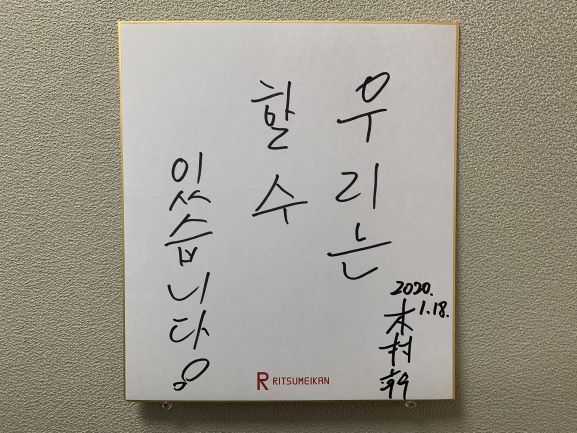 우리는
할 수
있습니다.
2020.
1.18.
木村 幹
R RITSUMEIKAN